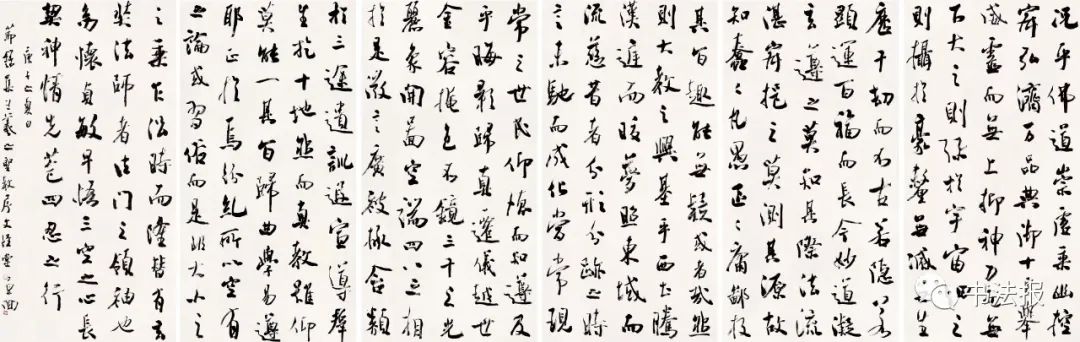 况乎佛道崇虛乘幽控
寂弘濟万品典御十舉
威靈而無上抑神力無
下大之則弥於宇宙細之
則攝於豪釐無滅無生
歷千劫而不古若隱若
顯運百福而長今妙道凝
玄遵之莫知其際法流
湛寂挹之莫測其源故
知蠢々凡愚區々庸鄙投
其旨趣能無疑或者哉然
則大教之興基乎西土騰
漢庭而皎夢照東域而
流慈昔者分形分跡之時
言未馳而成化當常現
常之世民仰德而知遵及
乎晦影歸真遷儀越世
金容掩色不鏡三千之光
麗象開圖空端四八之相
於是微言廣被拯含類
於三途遺訓遐宣導群
生於十地然而真教難仰
莫能一其旨歸曲學易遵
耶正於焉紛糺所以空有
之論或習俗而是非大小之
之乘乍沿時而隆替有玄
奘法師者法門之領袖也
幼懷貞敏早悟三空之心長
契神情先苞四忍之行
庚子之夏日
節錄集王羲之聖教序文
书法报